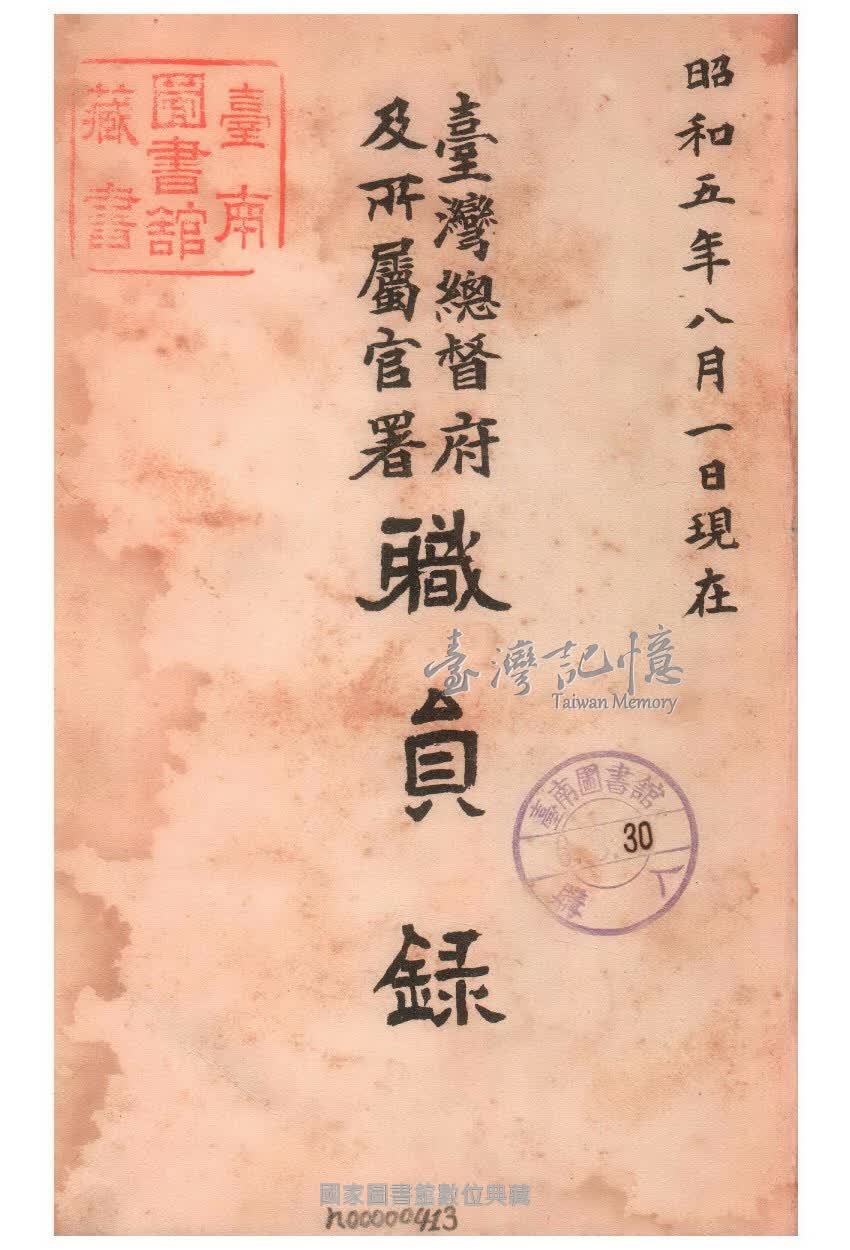 昭和五年八月一日現在
臺灣總督府
及所屬官署
職員錄
臺南
圖書館
藏書
臺灣記憶
Taiwan Memory
臺南圖書館
30
國家圖書館數位典藏
n00000413